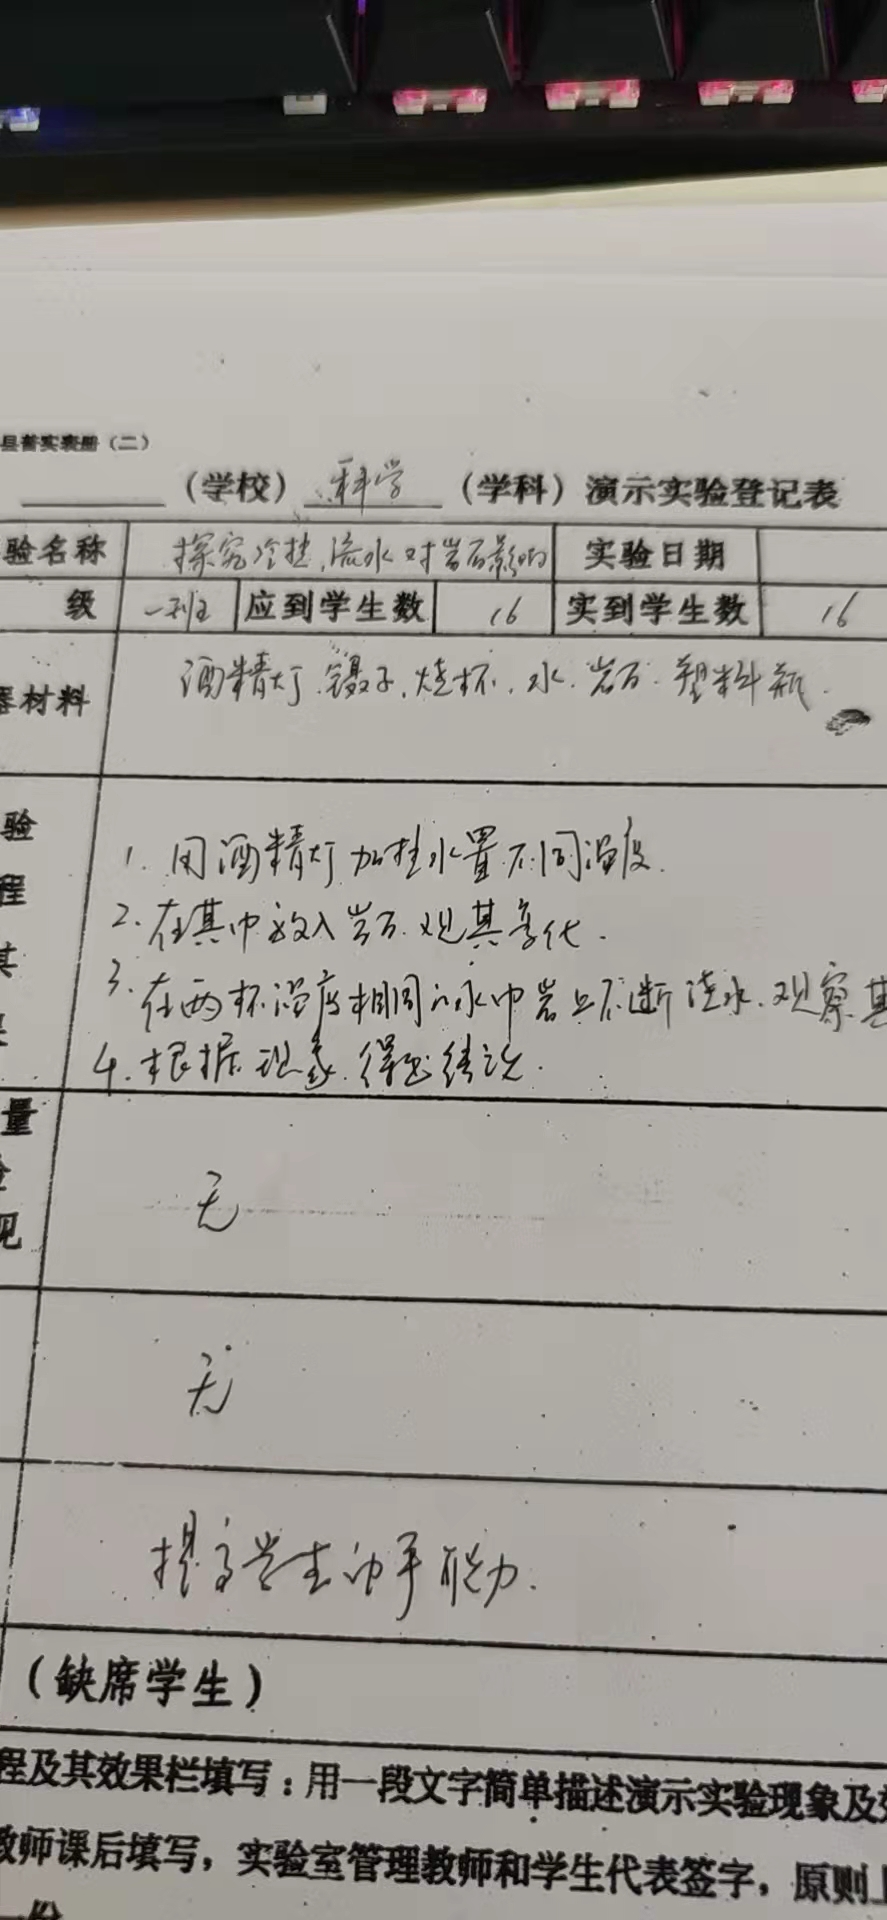 县普实表册（二）
（学校） 科学 （学科）演示实验登记表
验名称 探究冷热、流水对岩石影响 实验日期
级 一班 应到学生数 16 实到学生数 16
器材料 酒精灯、镊子、烧杯、水、岩石、塑料瓶.
验
程
其
1. 用酒精灯加热水置不同温度.
2. 在其中放入岩石.观其变化.
3. 在两杯温度相同的水中岩上不断浇水.观察其
4. 根据现象.得出结论.
量
见
无
无
提高学生动手能力.
（缺席学生）
程及其效果栏填写：用一段文字简单描述演示实验现象及效
教师课后填写，实验室管理教师和学生代表签字，原则上
一份